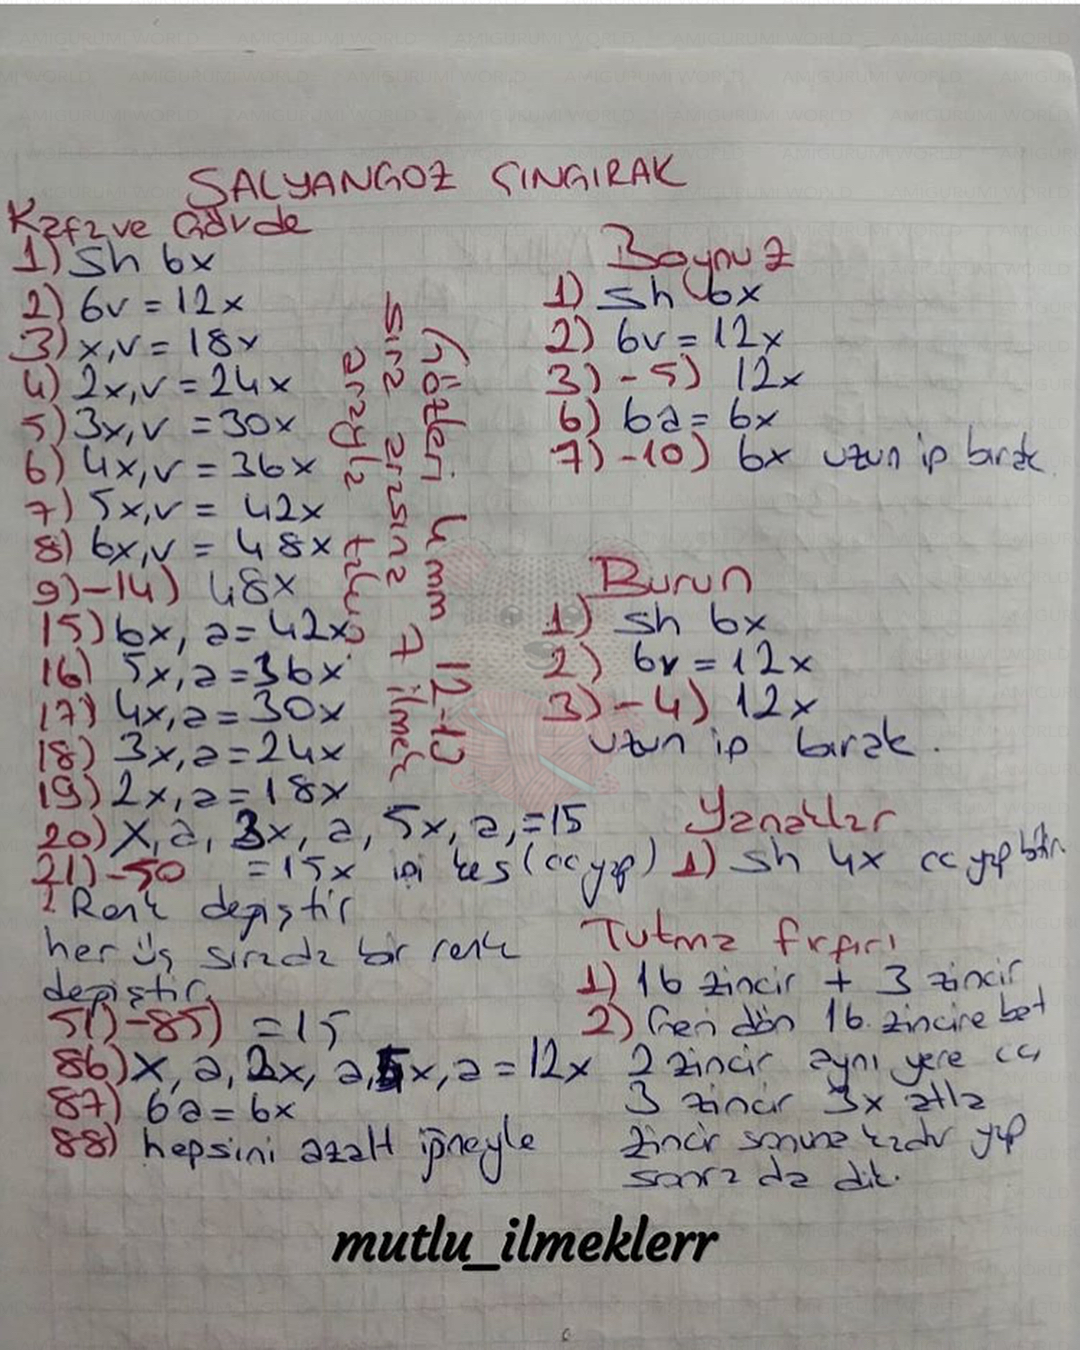 SALYANGOZ ÇINGIRAK
Kafa ve Gövde
1) Sh 6x
2) 6v = 12x
3) x,v = 18x
4) 2x,v = 24x
5) 3x,v = 30x
6) 4x,v = 36x
7) 5x,v = 42x
8) 6x,v = 48x
9)-14) 48x
15) 6x, a = 42x
16) 5x,a = 36x
17) 4x,a = 30x
18) 3x,a = 24x
19) 2x,a = 18x
20) X, a, 3x, a, 5x, a, = 15
21)-50 = 15x ipi kes (cc yap)
Renk değiştir
her üç sırada bir renk
değiştir.
51)-85) = 15
86) X, a, 2x, a, 5x, a = 12x
87) 6a = 6x
88) hepsini azalt iğneyle
Gözleri 4mm 12-13
sıra arasına 7 ilmek
arayla takın
Boynuz
1) Sh 6x
2) 6v = 12x
3)-5) 12x
6) 6a = 6x
7)-10) 6x uzun ip bırak
Burun
1) sh 6x
2) 6v = 12x
3)-4) 12x
uzun ip bırak.
Yanaklar
1) sh 4x cc yap
Tutma fırfırı
1) 16 zincir + 3 zincir
2) Geri dön 16. zincire bat
2 zincir aynı yere cc
3 zincir 3x atla
zincir sonuna kadar yap
sonra da dik.
mutlu_ilmeklerr